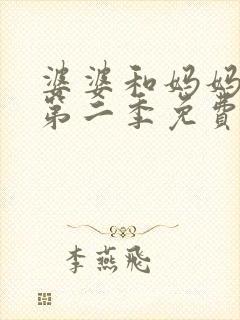 婆婆和妈妈
第二季免費
李燕飛